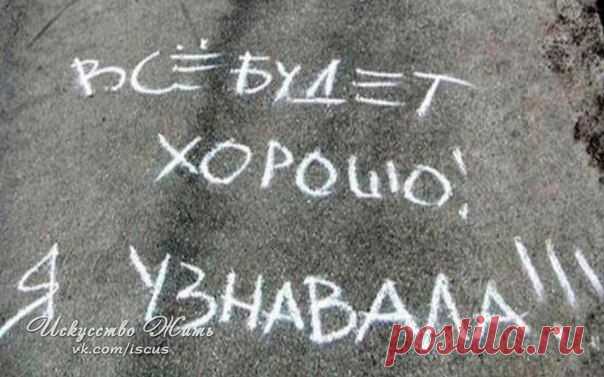 ВСЁ БУДЕТ
ХОРОШО!
Я УЗНАВАЛА!!!
Искусство Жить
vk.com/iscus
postila.ru